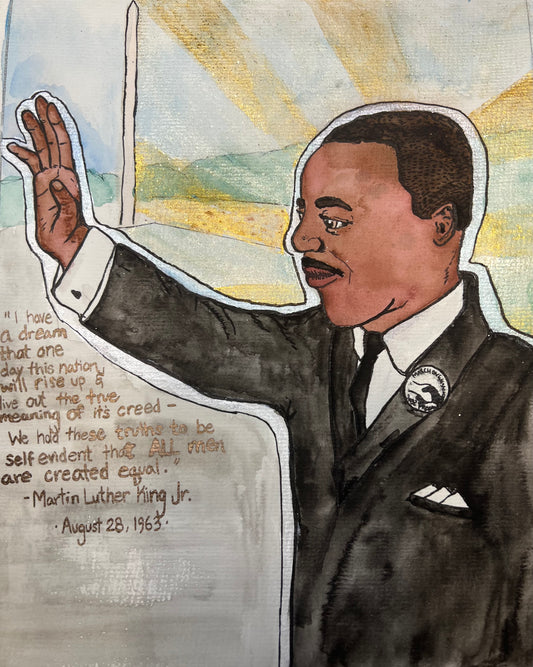 "I have
a dream
that one
day this nation
will rise up &
live out the true
meaning of its creed -
We hold these truths to be
self evident that ALL men
are created equal."
- Martin Luther King Jr.
· August 28, 1963 ·